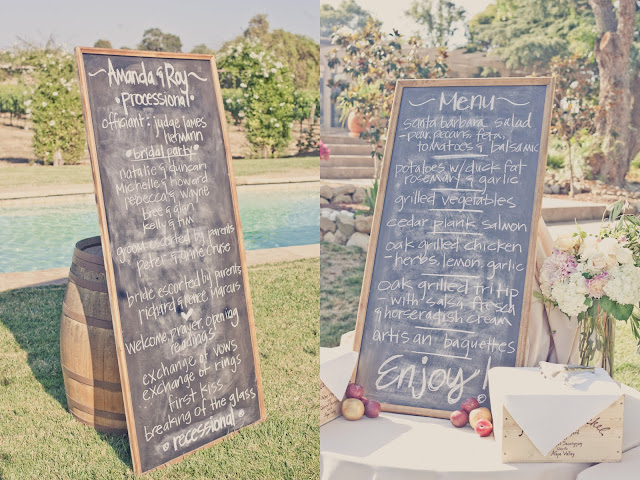 Amanda & Roy
• processional •
officiant: judge james
hermann
bridal party
natalie & duncan
Michelle & howard
rebecca & wayne
bree & alan
kelly & tim
groom escorted by parents
Peter & Anne Cruse
bride escorted by parents
richard & renee marcus
welcome, prayer, opening
readings
exchange of vows
exchange of rings
... First kiss ...
breaking of the glass
recessional
~ Menu ~
santa barbara salad
pear, pecans, feta,
tomatoes & balsamic
potatoes w/ duck fat
rosemary & garlic
grilled vegetables
cedar plank salmon
oak grilled chicken
- herbs, lemon, garlic
oak grilled tri tip
- with salsa fresca
& horseradish cream
artisan baguettes
Enjoy!
Napa Valley